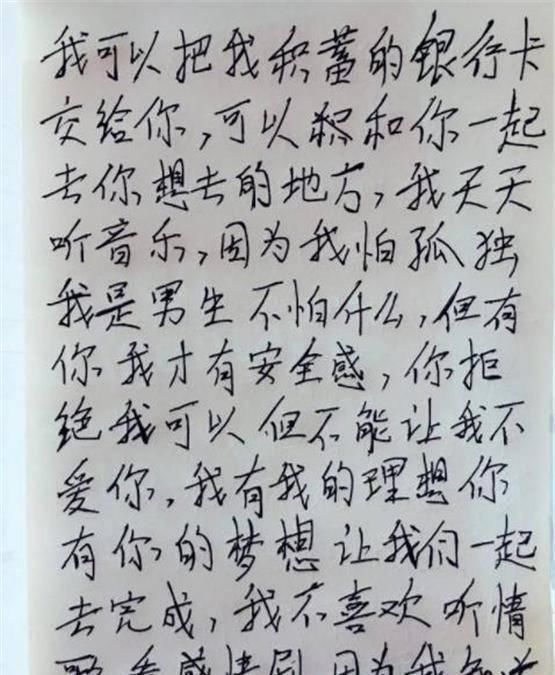 我可以把我积蓄的银行卡
交给你,可以和你一起
去你想去的地方,我天天
听音乐,因为我怕孤独
我是男生不怕什么,但有
你我才有安全感,你拒
绝我可以但不能让我不
爱你,我有我的理想你
有你的梦想让我们一起
去完成,我不喜欢听情
歌看感情剧因为我知道